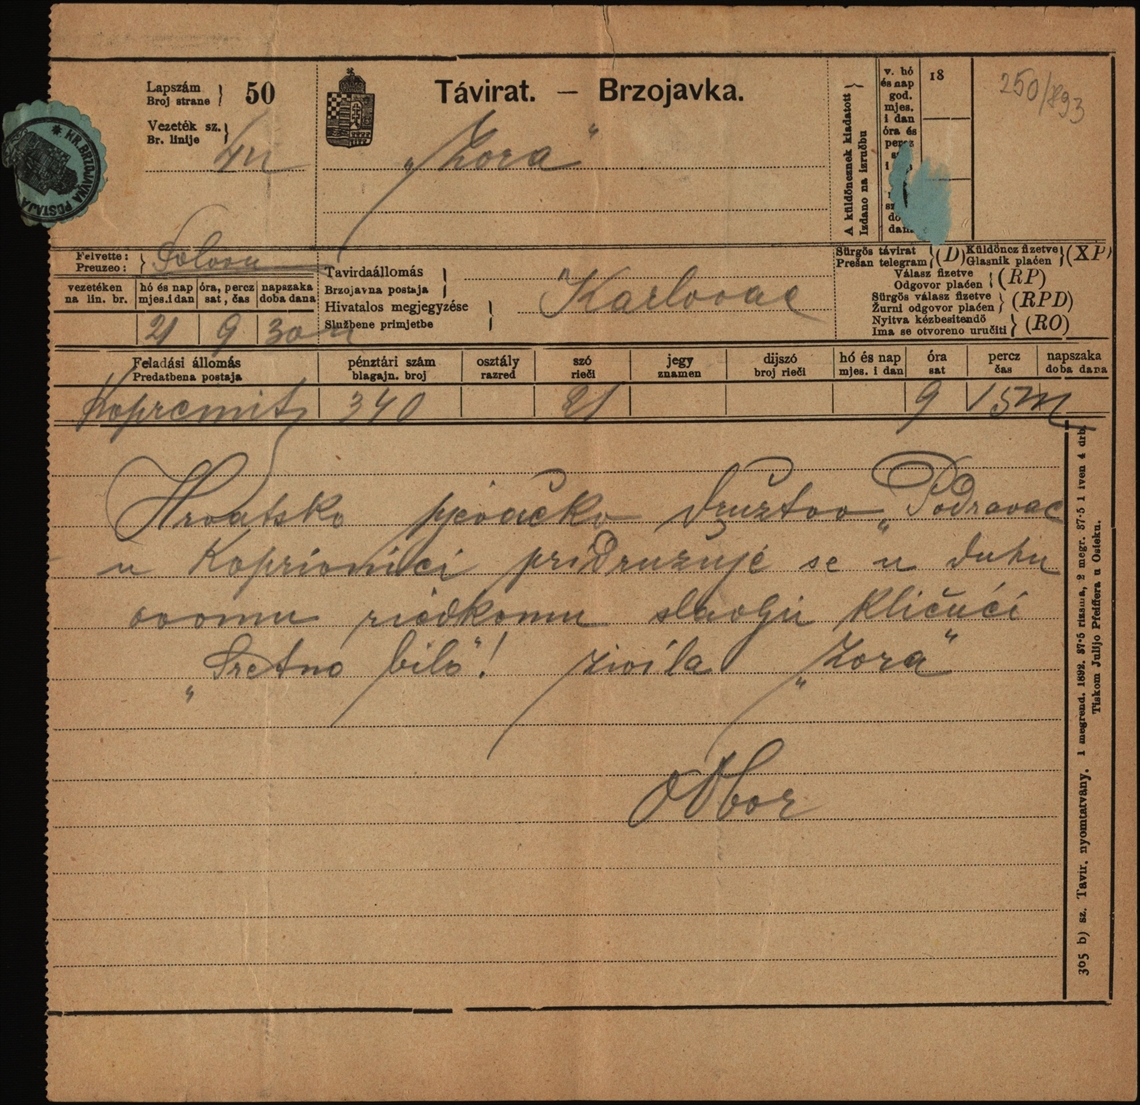 Lapszám
Broj strane } 50
Vezeték sz.
Br. linije }
Távirat. — Brzojavka.
„Zora"
A küldöncznek kiadatott
Izdano na izručbu
v. hó
és nap
god.
mjes.
i dan
óra és
percz
18
250/893
* HR. BRZOJAVNA POSTAJA
Felvette:
Preuzeo: }
vezetéken
na lin. br.
hó és nap
mjes. i dan
óra, percz
sat, čas
napszaka
doba dana
21 9 30
Távirdaállomás
Brzojavna postaja }
Hivatalos megjegyzése
Službene primjetbe }
Karlovac
Sürgös távirat
Prešan telegram } (D)
Küldöncz fizetve
Glasnik plaćen } (XP)
Válasz fizetve
Odgovor plaćen } (RP)
Sürgös válasz fizetve
Žurni odgovor plaćen } (RPD)
Nyitva kézbesitendő
Ima se otvoreno uručiti } (RO)
Feladási állomás
Predatbena postaja
pénztári szám
blagajn. broj
osztály
razred
szó
rieči
jegy
znamen
dijszó
broj rieči
hó és nap
mjes. i dan
óra
sat
percz
čas
napszaka
doba dana
340 21 9 15
Hrvatsko pjevačko družtvo „Podravac
u Koprivnici pridružuje se u duhu
ovomu riedkomu slavlju kličući
„Sretno bilo"! živila „Zora"
Odbor
305 b) sz. Távir. nyomtatvány. 1 megrend. 1892. 37·5 risma, 2 megr. 37·5 1 iven 4 drb.
Tiskom Julijo Pfeiffera u Osieku.